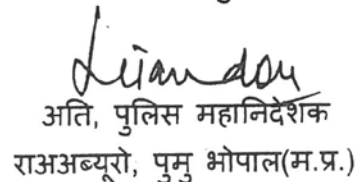 अति, पुलिस महानिदेशक
राअअब्यूरो, पुमु भोपाल(म.प्र.)